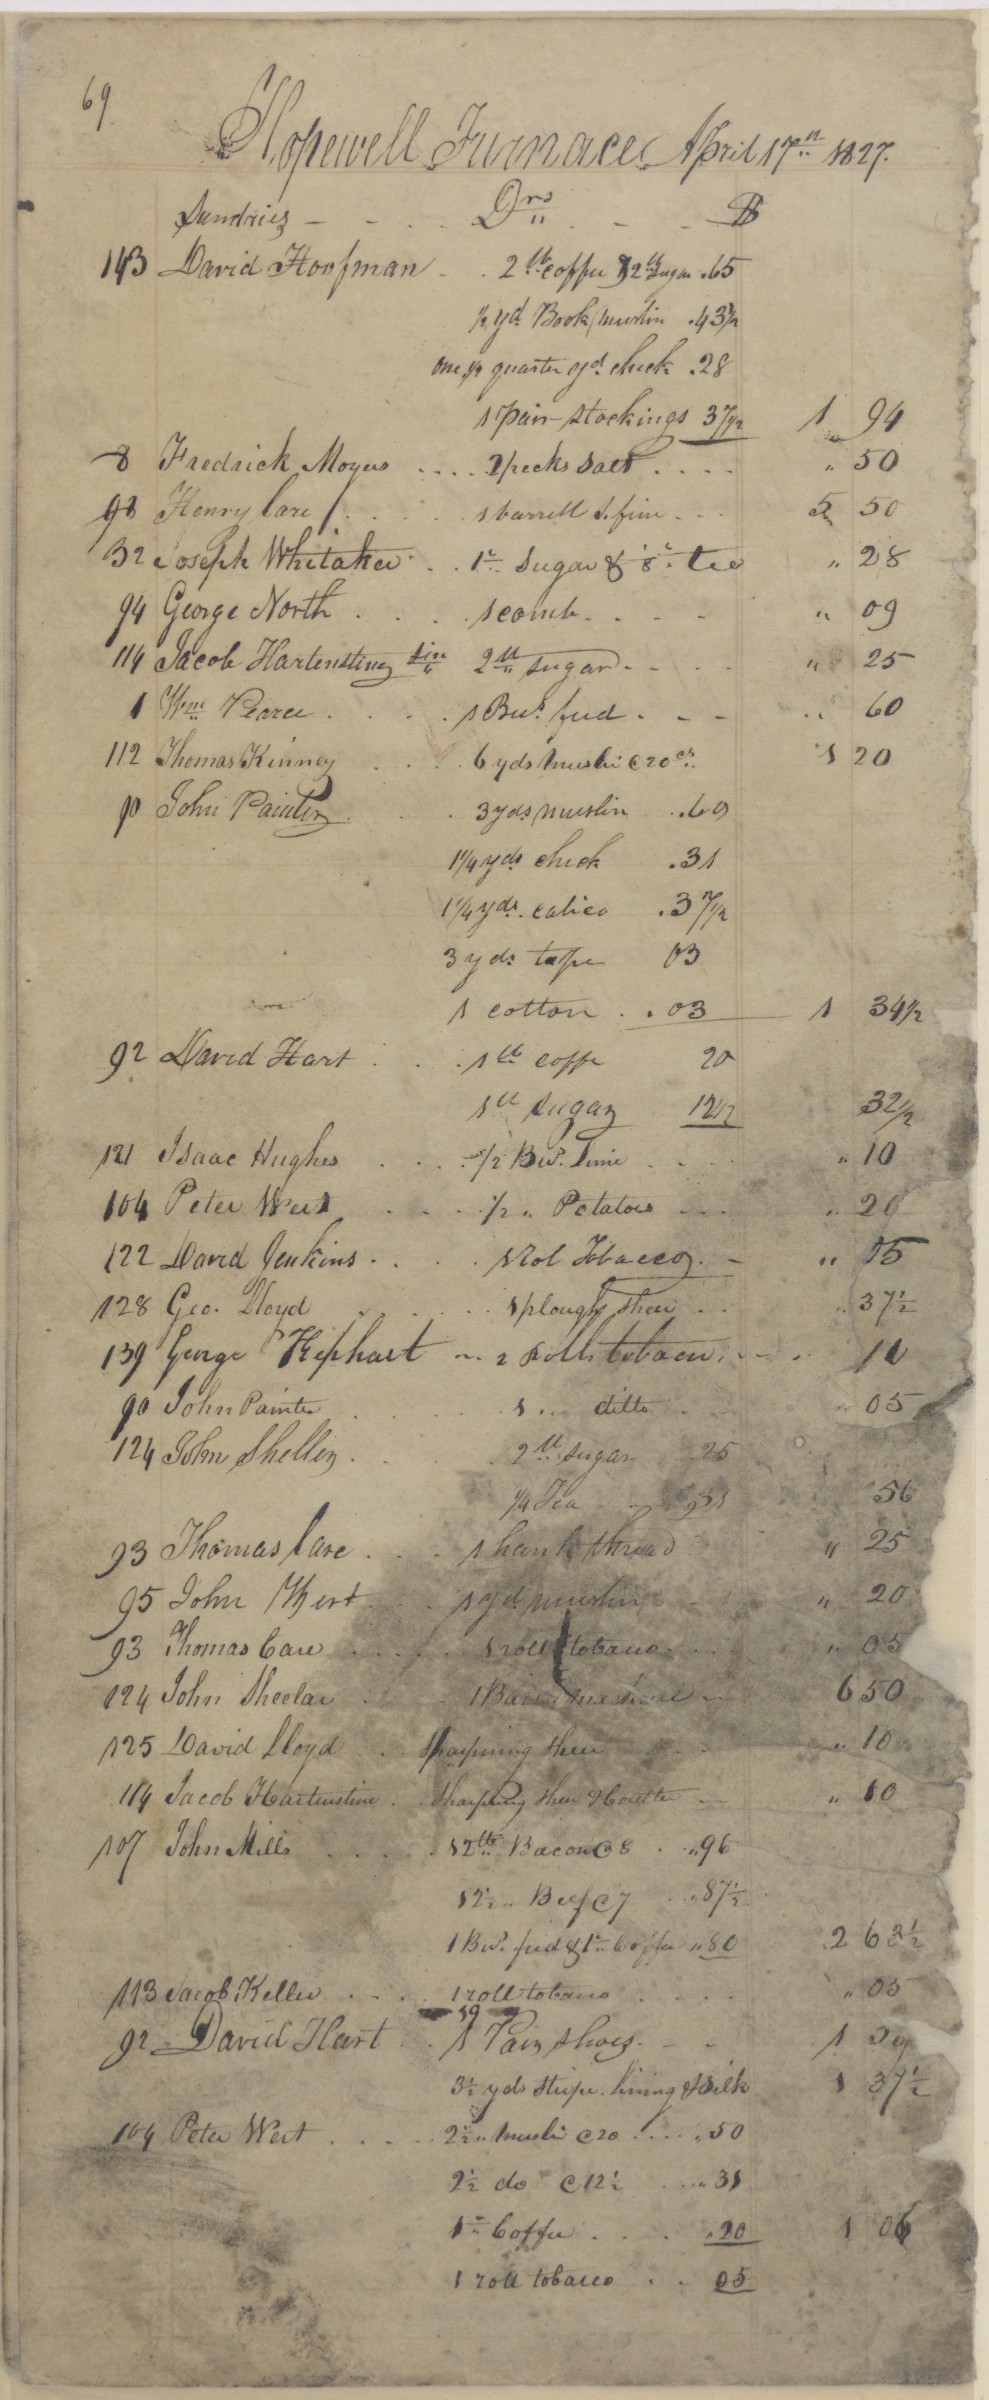 69
Hopewell Furnace April 17th 1827.
Sundries - - . . Drs . - - $
143 David Hoofman . . 2 lb coffee & 2 lb Sugar .65
1/2 yd Book muslin .43 1/2
one 1/2 quarter yd. check .28
1 Pair stockings 37 1/2 1 94
8 Fredrick Moyers . . . . 2 pecks Salt . . . . " 50
98 Henry Care . . . . 1 barrell S. fine - - - 5 50
32 Joseph Whitaker . . 1 " Sugar & 1/8 " tea " 28
94 George North . . . . 1 comb . . - - " 09
114 Jacob Hartensting Sen 2 lb sugar - - . . " 25
1 Wm Pearce . . . . 1 Bus. feed . - - .. 60
112 Thomas Kinney . . . 6 yds muslin @ 20 cs. 1 20
90 John Painter . . . 3 yds muslin .60
1 1/4 yds check .31
1 1/4 yds. calico .37 1/2
3 yds tape 03
1 cotton . .03 1 34 1/2
92 David Hart . . . 1 lb coffe 20
1 lb sugar 12 1/2 32 1/2
121 Isaac Hughes . . . 1/2 Bus. Lime . - . . " 10
104 Peter Wert . - - - 1/2 " Potatoes - - - " 20
122 David Jenkins . . . . 1 Rol Tobacco . - " 05
128 Geo. Lloyd . . . . 1 plough shear . . " 37 1/2
139 George Kephart - .. 2 rolls tobacco . - - . 10
90 John Painter . . . . . 1 .. ditto . . 05
124 John Sheller . . . . 2 lb sugar 25
1/4 Tea . . 31 56
93 Thomas Care . . . 1 hank thread " 25
95 John Wert . . . 1 yd. muslin - " 20
93 Thomas Care . . . . . 1 roll tobacco . . . " 05
124 John Sheelar . . 1 Bar. - 6 50
125 David Lloyd . . Sharpning shear . . . " 10
114 Jacob Hartenstine . Sharpning shear & Coulter - " 10
107 John Mills . . . . . 12 lb " Bacon @ 8 . " 96
12 1/2 " Beef @ 7 . " 87 1/2
1 Bus. feed & 1 " Coffee " 80 2 63 1/2
113 Jacob Keller . . . . 1 roll tobacco . . . . " 05
92 David Hart . . 1 Pair shoes . - -
3 1/2 yds stripe. lining & Silk 1 37 1/2
104 Peter Wert . . . . . 2 1/2 " muslin @ 20 . . . . . 50
2 1/2 do @ 12 1/2 . . . " 31
1 " Coffee . . . . . 20 1 06
1 roll tobacco . . 05